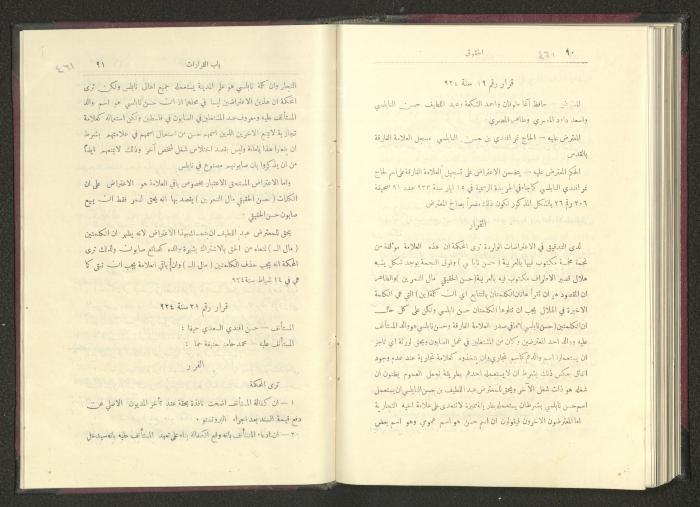 ٩٠
الحقوق
٤٦١
قرار رقم ١٩ سنة ٩٢٤
المعترض — حافظ آغا طوقان واحمد الشكعة وعبد اللطيف حسن النابلسي
واسعد داود
المعترض عليه — الحاج نمر افندي بن حسن النابلسي مسجل العلامة الفارقة
بالقدس
الحكم المعترض عليه — يتضمن الاعتراض على تسجيل العلامة الفارقة على اسم الحاج
نمر افندي النابلسي كما جاء في الجريدة الرسمية في ١٥ ايار سنة ٩٢٣ عدد ٩١ صحيفة
٢٠٦ رقم ٢٦ بالشكل المذكور تكون ذلك مضراً بصالح المعترض
القرار
لدى التدقيق في الاعتراضات الواردة ترى المحكمة ان هذه العلامة مؤلفة من
نجمة مخمسة مكتوب فيها بالعربية (حسن نابلسي) وفوق النجمة يوجد شكل يشبه
هلال قصير الاطراف مكتوب فيه بالعربية (الحقيقي مال النمرين) والظاهر
ان المقصود هو ان تقرأ هاتان الكلمتان بالتتابع اي ان كلمة (ين) التي هي الكلمة
الاخيرة في الهلال يجب ان تتلوها الكلمتان حسن نابلسي ولكن على كل حال
ان الكلمتين (حسن نابلسي) هما في صدر العلامة الفارقة وحسن نابلسي هو والد المستأنف
عليه ووالد احد المعترضين وكان من المشتغلين في عمل الصابون ويحق لورثة اي تاجر
ان يستعملوا اسم والدهم كاسم تجاري وان يتخذوه كعلامة تجارية عند عدم وجود
اتفاق بعكس ذلك بشرط ان لا يستعمله احدهم بطريقة تجعل العموم يظنون ان
شغله هو ذات شغل الآخر ويحق للمعترض عبد اللطيف بن حسن النابلسي ان يستعمل
اسم حسن نابلسي بشرط ان يستعمله بطريقة مميزة لا تتعدى على علامة اخيه التجارية
اما المعترضون الآخرون فيقولون ان اسم حسن هو اسم عمومي وهو اسم بعض
٩١
باب القرارات
٤٦١
التجار وان كلمة نابلسي هو على المدينة يستعمله جميع اهالي نابلس ولكن ترى
المحكمة ان هذين الاعتراضين ليسا في محلهما اذ ان حسن نابلسي هو اسم والد
المستأنف عليه ومعروف عند المشتغلين في الصابون في فلسطين ولكن استعماله كعلامة
تجارية لا يمنع الآخرين الذين اسمهم حسن من استعمال اسمهم في علامتهم بشرط
ان يفعلوا هذا بامانة وليس بقصد اختلاس شغل شخص آخر وذلك لا يمنعهم ايضاً
من ان يذكروا بان صابونهم مصنوع في نابلس
واما الاعتراض المستحق الاعتبار بخصوص باقي العلامة هو الاعتراض على ان
الكلمات (حسن الحقيقي مال النمرين) يقصد بها انه يحق لنمر فقط ان يبيع
صابون حسن الحقيقي
يحق للمعترض عبد اللطيف ان يتمسك بهذا الاعتراض لانه يظهر ان الكلمتين
(مال الـ) تمنعاه من الحق بالاشتراك بشهرة والده كصانع صابون ولذلك ترى
المحكمة انه يجب حذف الكلمتين (مال الـ) وان باقي العلامة يجب ان تبقى كما
هي في ١٤ شباط سنة ٩٢٤
قرار رقم ٣١ سنة ٩٢٤
المستأنف — حسن افندي السعدي حيفا :
المستأنف عليه — محمد حامد حنيفة عكا :
القرار
ترى المحكمة
١ — ان كفالة المستأنف اضحت نافذة بحقه عند تأخر المديون الاصلي عن
دفع قيمة السند بعد اجراء البروتستو .
٢ — ان ادعاء المستأنف بانه وقع الكفالة بناء على تعهد المستأنف عليه بانه سيدخل